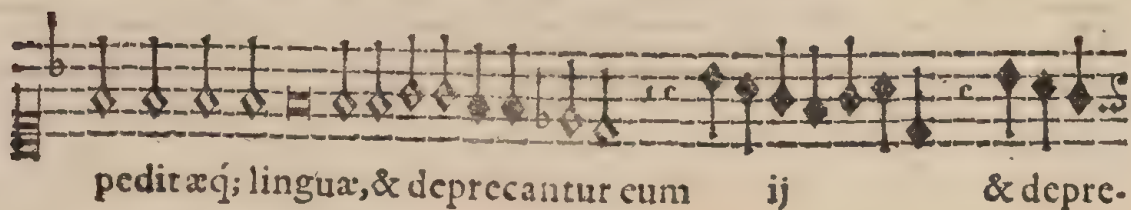 peditæq́; linguæ, & deprecantur eum ij & depre-